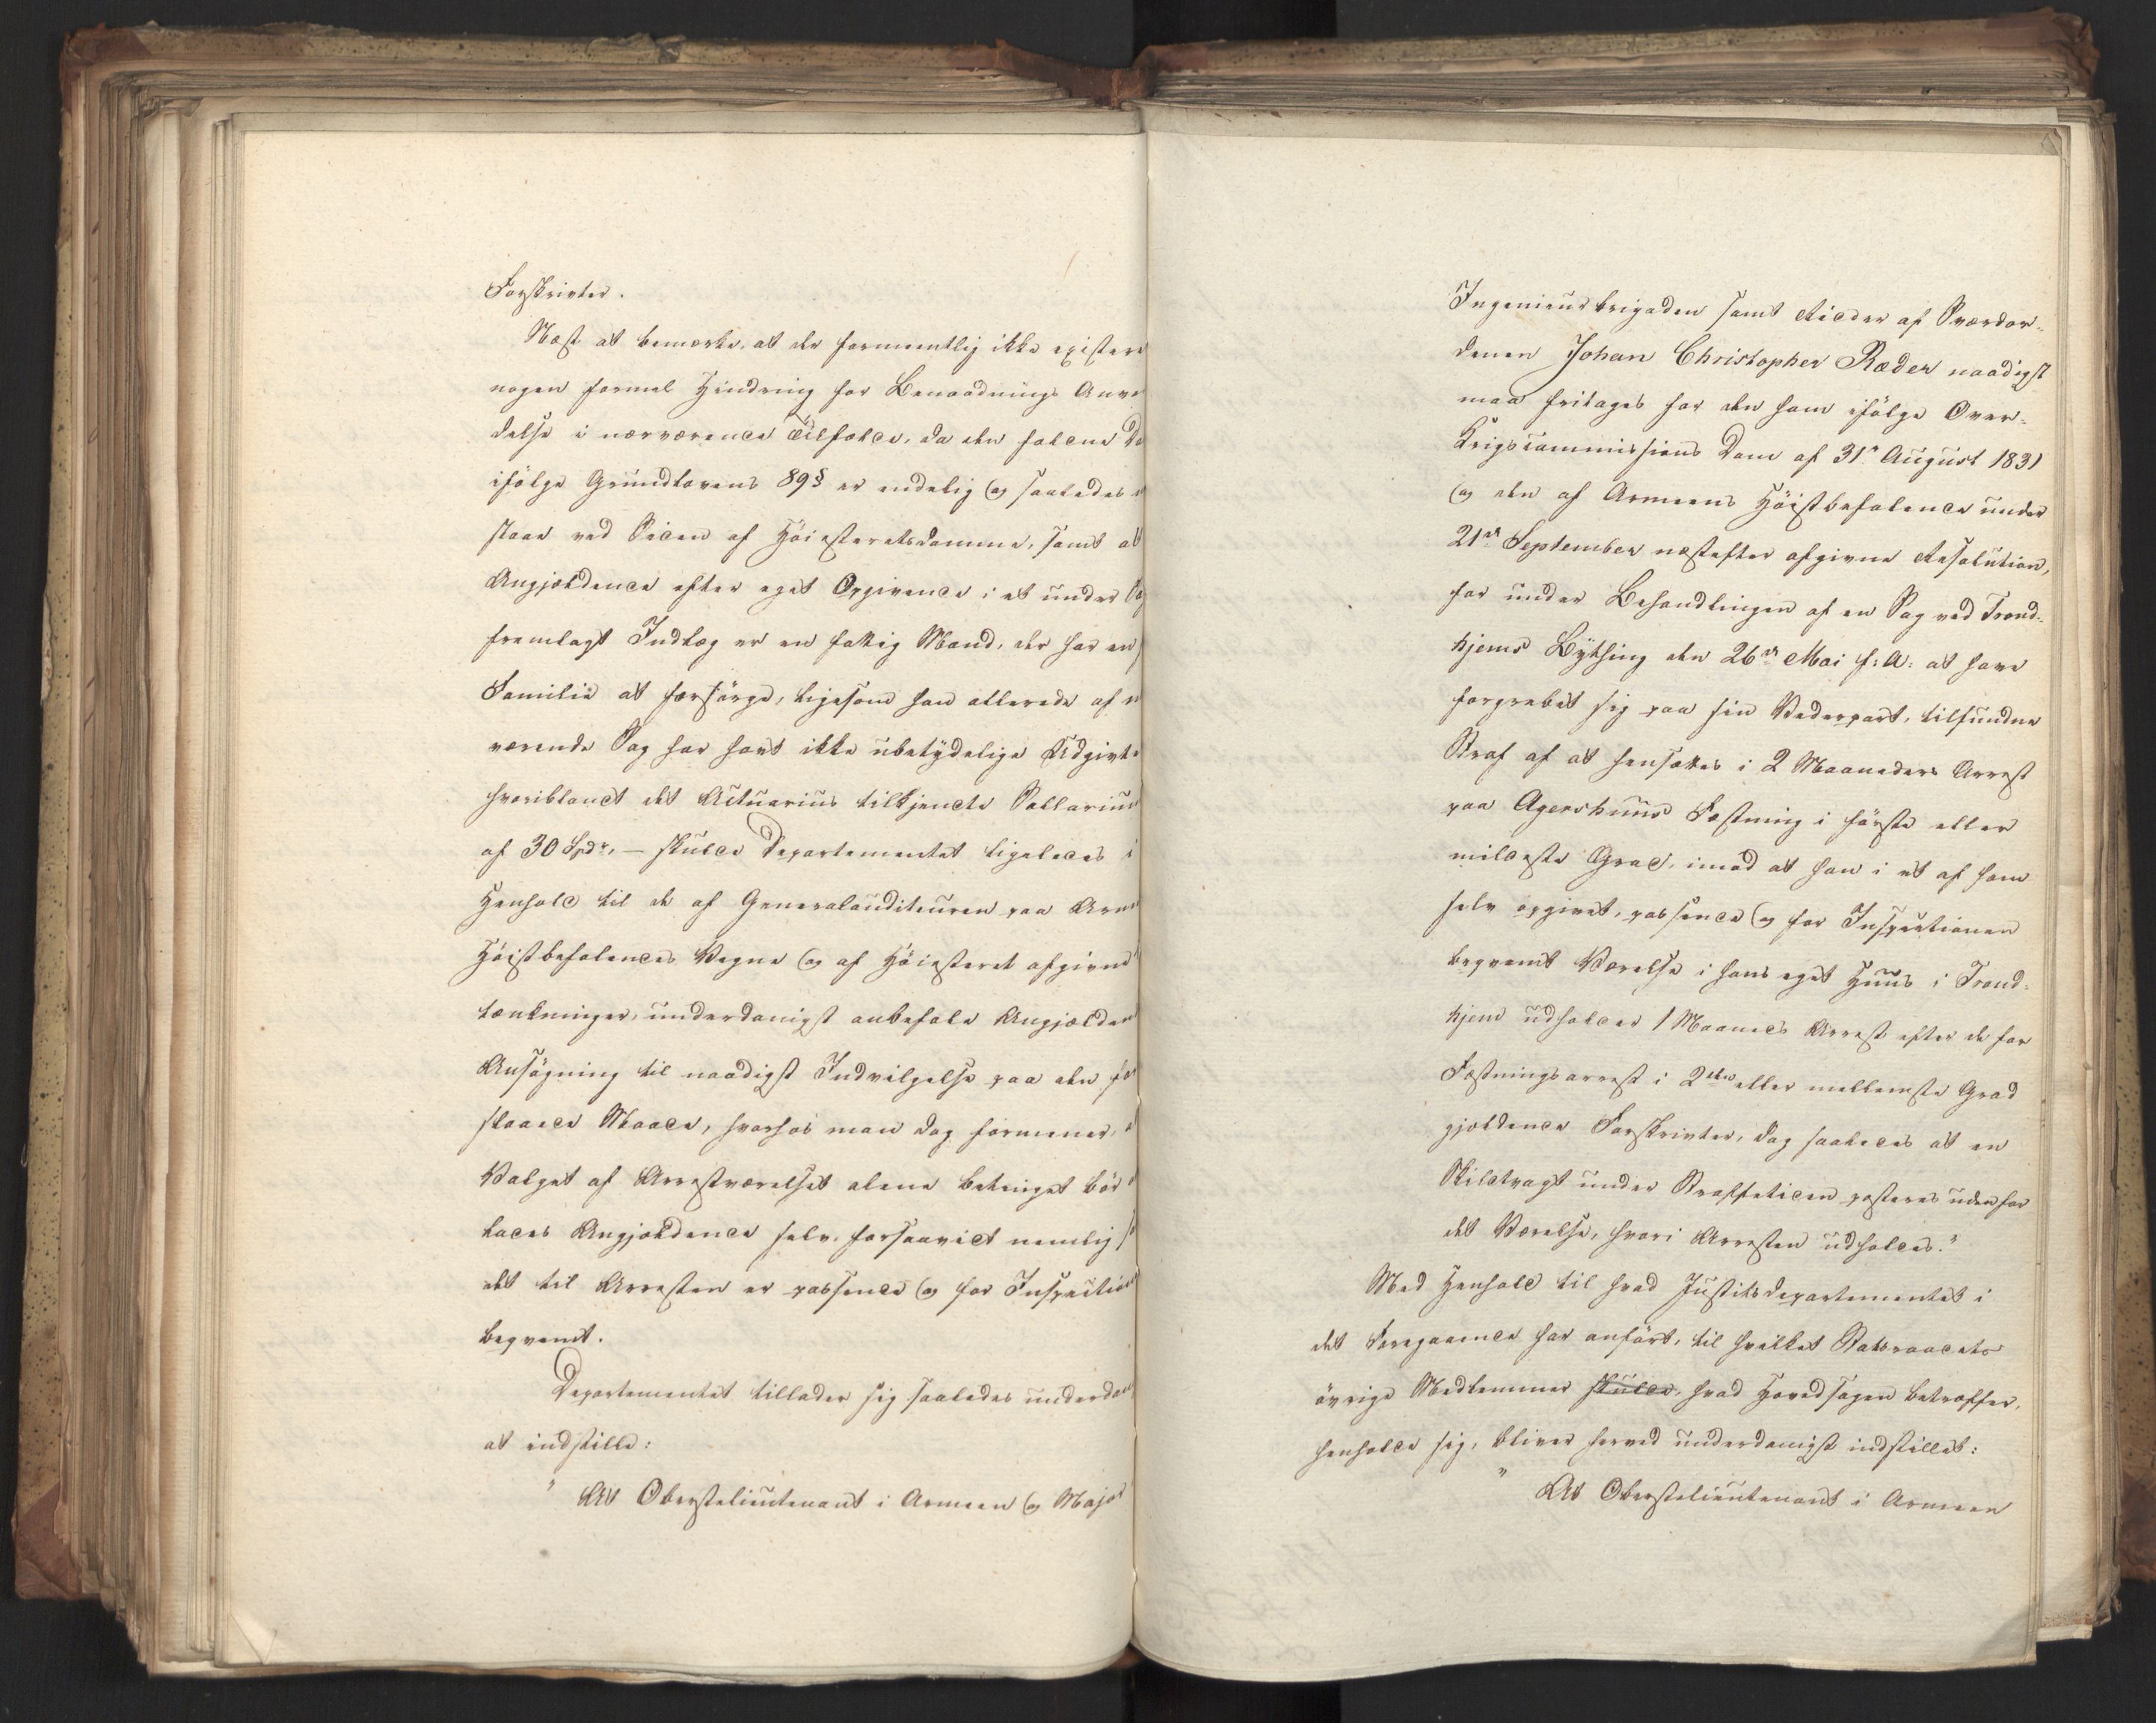 Forskrivter.
Næst at bemærke, at der formeentlig ikke existere
nogen formel Hindring for Benaadnings Anve
delse i nærværende Tilfælde, da den faldne Do
ifölge Grundlovens 89§ er endelig og saaledes
staar ved Siden af Höiesteretsdomme, samt at
Angjældende efter eget Opgivende i et under Sag
fremlagt Indlæg er en fattig Mand, der har en
Familie at forsörge, ligesom han allerede af n
værende Sag har havt ikke ubetydelige Udgivte
hvoriblandt det Actuarius tilkjendte Sallarium
af 30 Spdr, — skulde Departementet ligeledes i
Henhold til de af Generalauditeuren paa Arme
Höistbefalendes Vegne og af Höiesteret afgivne
tænkninger, underdanigst anbefale Angjælden
Ansögning til naadigst Indvilgelse paa den fo
staaede Maade, hvorhos man dog formener, a
Valget af Arrestværelset alene betinget bör
lades Angjældende selv, forsaavidt nemlig
det til Arresten er passende og for Inspection
beqvemt.
Departementet tillader sig saaledes underdan
at indstille:
" At Oberstelieutenant i Armeen og Major
Ingenieurbrigaden samt Ridder af Sværdor-
denen Johan Christopher Ræder naadigst
maa fritages for den ham ifölge Over-
Krigscommissions Dom af 31te August 1831
og den af Armeens Höistbefalende under
21de September næstefter afgivne Resolution,
for under Behandlingen af en Sag ved Trond-
hjems Bything den 26de Mai f: A: at have
forgrebet sig paa sin Vederpart, tilfundne
Straf af at hensættes i 2 Maaneders Arrest
paa Agershuus Fæstning i förste eller
mildeste Grad, imod at han i et af ham
selv opgivet, passende og for Inspectionen
beqvemt Værelse i hans eget Huus i Trond-
hjem udholder 1 Maaneds Arrest efter de for
Fæstningsarrest i 2den eller mellemste Grad
gjældende Forskrivter, dog saaledes at en
Skildvagt under Straffetiden posteres udenfor
det Værelse, hvori Arresten udholdes."
Med Henhold til hvad Justitsdepartementet i
det Foregaaende har anfört, til hvilket Statsraadets
övrige Medlemmer skulde, hvad Hovedsagen betræffer,
henholde sig, bliver herved underdanigst indstillet:
" At Oberstelieutenant i Armeen